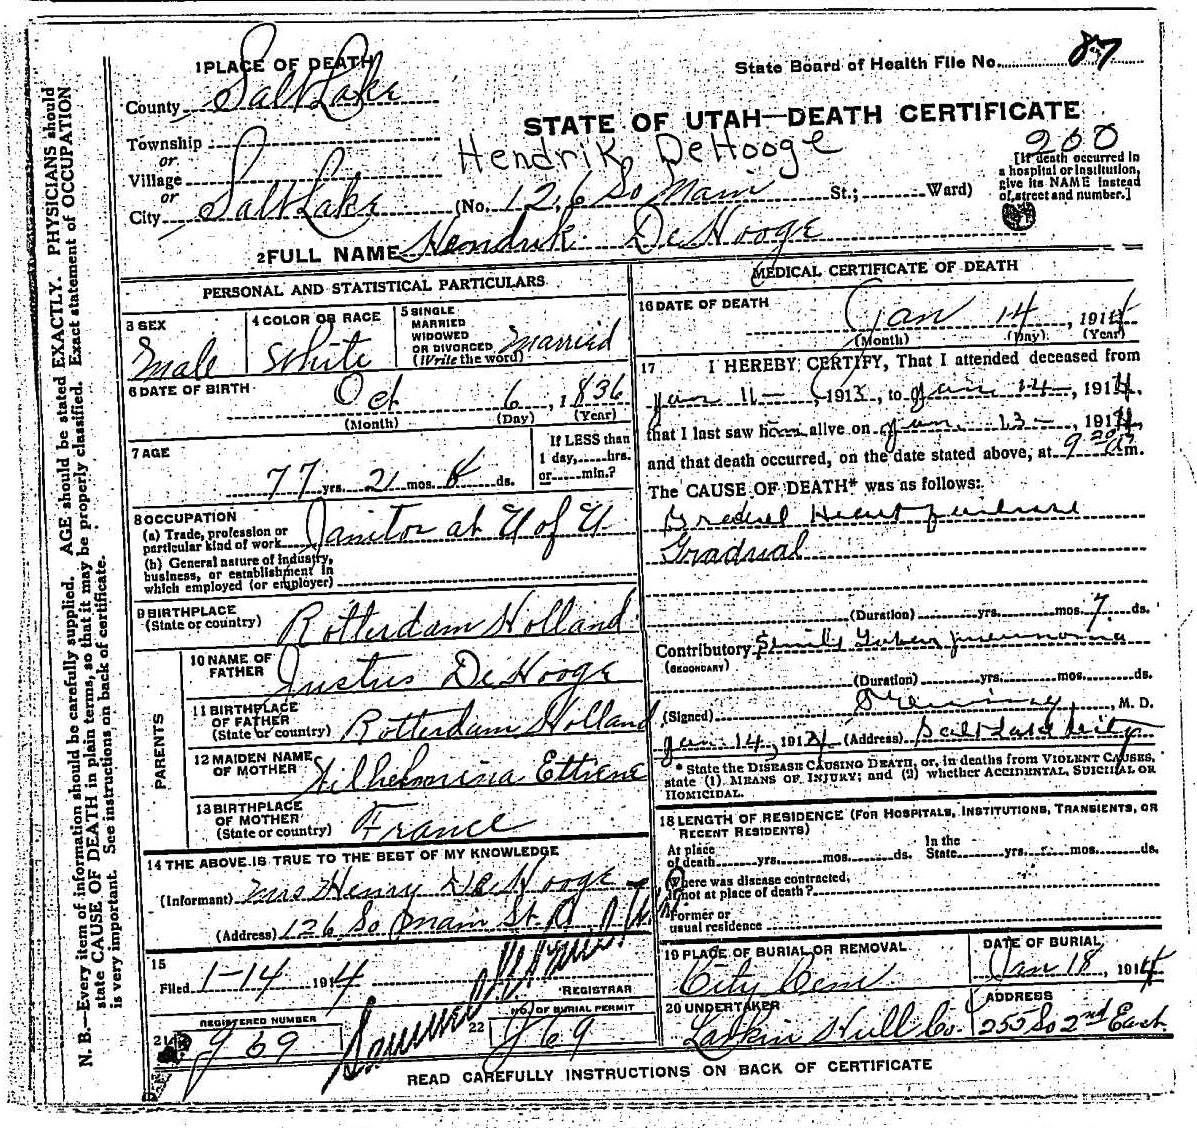 1 PLACE OF DEATH
State Board of Health File No. 87
County Salt Lake
STATE OF UTAH—DEATH CERTIFICATE
Township
or
Village
or
Hendrik DeHooge
200
[If death occurred in
a hospital or institution,
give its NAME instead
of street and number.]
City Salt Lake (No. 126 So Main St.; Ward)
2 FULL NAME Hendrik De Hooge
PERSONAL AND STATISTICAL PARTICULARS
3 SEX
Male
4 COLOR OR RACE
White
5 SINGLE
MARRIED
WIDOWED
OR DIVORCED
(Write the word) Married
6 DATE OF BIRTH
Oct 6, 1836
(Month) (Day) (Year)
7 AGE
77 yrs. mos. 8 ds.
If LESS than
1 day, hrs.
or min.?
8 OCCUPATION
(a) Trade, profession or
particular kind of work Janitor at U of U
(b) General nature of industry,
business, or establishment in
which employed (or employer)
9 BIRTHPLACE
(State or country) Rotterdam Holland
PARENTS
10 NAME OF
FATHER Justus De Hooge
11 BIRTHPLACE
OF FATHER
(State or country) Rotterdam Holland
12 MAIDEN NAME
OF MOTHER Wilhelmina Ettiene
13 BIRTHPLACE
OF MOTHER
(State or country) France
14 THE ABOVE IS TRUE TO THE BEST OF MY KNOWLEDGE
(Informant) Mrs Henry De Hooge
(Address) 126 So Main St.
15
Filed 1-14 1914
REGISTRAR
21 REGISTERED NUMBER
J 69
22 NO. OF BURIAL PERMIT
J 69
MEDICAL CERTIFICATE OF DEATH
16 DATE OF DEATH
Jan 14, 1914
(Month) (Day) (Year)
17 I HEREBY CERTIFY, That I attended deceased from
Jan 11, 191, to Jan 14, 1914,
that I last saw him alive on Jan. 13, 1914,
and that death occurred, on the date stated above, at 9 20 a m.
The CAUSE OF DEATH* was as follows:
Gradual Heart failure
Gradual
(Duration) yrs. mos. 7 ds.
Contributory Senility pneumonia
(SECONDARY)
(Duration) yrs. mos. ds.
(Signed) M. D.
Jan. 14, 1914 (Address) Salt Lake City
* State the DISEASE CAUSING DEATH, or, in deaths from VIOLENT CAUSES,
state (1) MEANS OF INJURY; and (2) whether ACCIDENTAL, SUICIDAL OR
HOMICIDAL.
18 LENGTH OF RESIDENCE (FOR HOSPITALS, INSTITUTIONS, TRANSIENTS, OR
RECENT RESIDENTS)
At place
of death yrs. mos. ds.
In the
State yrs. mos. ds.
Where was disease contracted,
if not at place of death?
Former or
usual residence
19 PLACE OF BURIAL OR REMOVAL
City Cem
DATE OF BURIAL
Jan 18, 1914
20 UNDERTAKER
Larkin Hull Co.
ADDRESS
255 So 2nd East
READ CAREFULLY INSTRUCTIONS ON BACK OF CERTIFICATE
N. B.—Every item of information should be carefully supplied. AGE should be stated EXACTLY. PHYSICIANS should
state CAUSE OF DEATH in plain terms, so that it may be properly classified. Exact statement of OCCUPATION
is very important. See instructions on back of certificate.